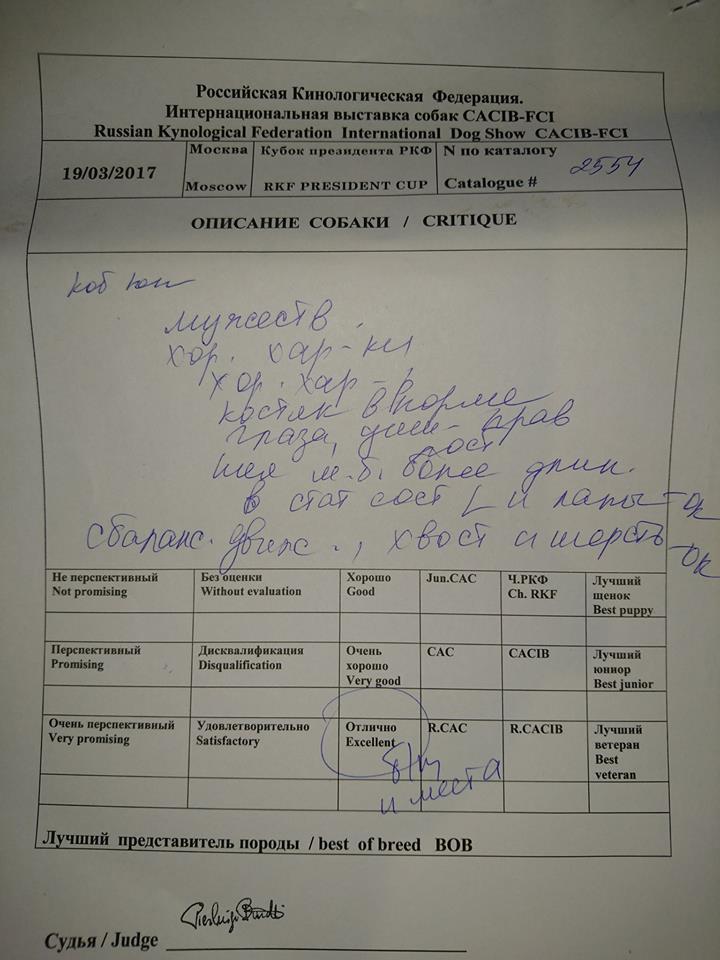 Российская Кинологическая Федерация.
Интернациональная выставка собак CACIB-FCI
Russian Kynological Federation International Dog Show CACIB-FCI
19/03/2017
Москва
Moscow
Кубок президента РКФ
RKF PRESIDENT CUP
N по каталогу
Catalogue #
2554
ОПИСАНИЕ СОБАКИ / CRITIQUE
коб юн
мужеств.
хор. хар-ки
хор. хар-
костяк в норме
глаза, уши - прав
пост
шея м.б. более длин.
в стат сост и лапы - ок
сбаланс. движ., хвост и шерсть - ок
Не перспективный
Not promising
Без оценки
Without evaluation
Хорошо
Good
Jun.CAC
Ч.РКФ
Ch. RKF
Лучший
щенок
Best puppy
Перспективный
Promising
Дисквалификация
Disqualification
Очень
хорошо
Very good
CAC
CACIB
Лучший
юниор
Best junior
Очень перспективный
Very promising
Удовлетворительно
Satisfactory
Отлично
Excellent
R.CAC
R.CACIB
Лучший
ветеран
Best
veteran
б/т
и места
Лучший представитель породы / best of breed BOB
Судья / Judge